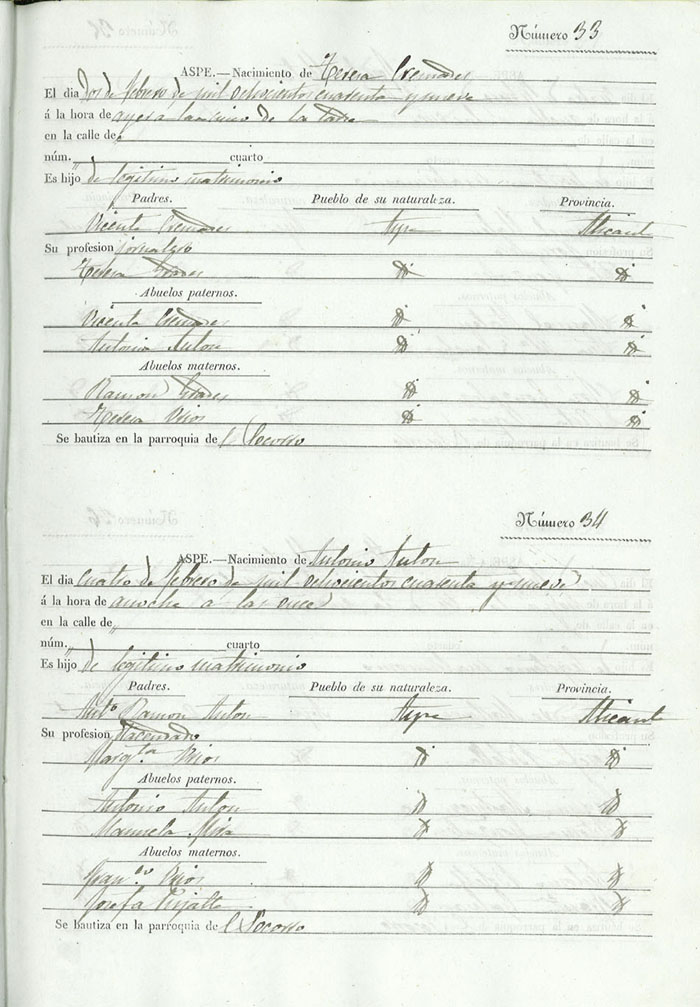 Número 33
ASPE.—Nacimiento de Teresa Cremades
El dia dos de febrero de mil ochocientos cuarenta y nueve
á la hora de ayer a las cinco de la tarde
en la calle de „
núm. „ cuarto
Es hijo de legitimo matrimonio
Padres. Pueblo de su naturaleza. Provincia.
Vicente Cremades Aspe Alicant
Su profesion jornalero
Teresa Id Id
Abuelos paternos.
Vicente Cremades Id Id
Antonia Anton Id Id
Abuelos maternos.
Ramon Id Id
Teresa Id Id
Se bautiza en la parroquia de l Socorro
Número 34
ASPE.—Nacimiento de Antonio Anton
El dia cuatro de febrero de mil ochocientos cuarenta y nueve
á la hora de anoche a las once
en la calle de „
núm. „ cuarto
Es hijo de legitimo matrimonio
Padres. Pueblo de su naturaleza. Provincia.
Antº Ramon Anton Aspe Alicant
Su profesion Hacendado
Margta Id Id
Abuelos paternos.
Antonio Anton Id Id
Manuela Mira Id Id
Abuelos maternos.
Id Id
Josefa Id Id
Se bautiza en la parroquia de l Socorro